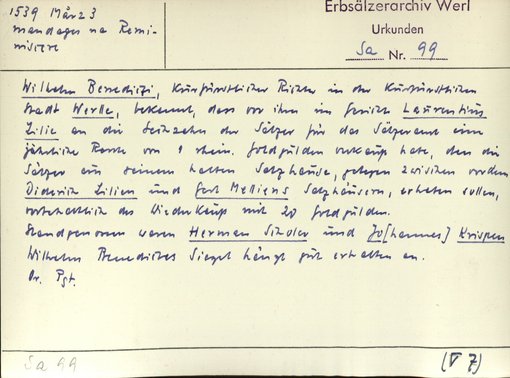 1539 März 3
mandages na Remi-
niscere
Erbsälzerarchiv Werl
Urkunden
Sa Nr. 99
Wilhelm Benedicti, Kurfürstlicher Richter in der Kurfürstlichen
Stadt Werlle, bekennt, dass vor ihm im Gericht Laurentius
Zilie an die Sälzer für das Sälzeramt eine
jährliche Rente von 1 rhein. Goldgulden verkauft habe, den die
Sälzer aus seinem halben Salzhause, gelegen zwischen
Diderich Zilien und Gert Mellijens Salzhäusern, erheben sollen,
vorbehaltlich des Wiederkaufs mit 20 Goldgulden.
Standgenossen waren Herman und Jo[hannes] Krispen
Wilhelm Benedictes Siegel hängt gut erhalten an.
Or. Pgt.
Sa 99
(V 7)